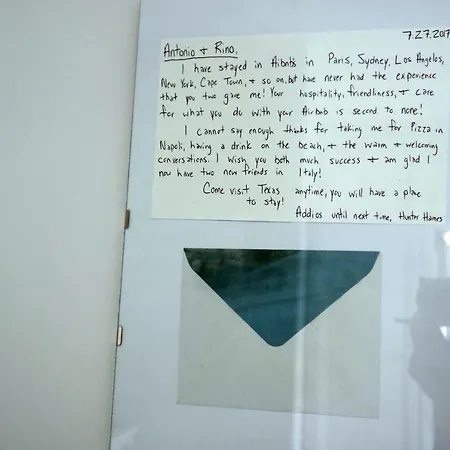 7.27.2017
Antonio + Rino,
I have stayed in Airbnbs in Paris, Sydney, Los Angeles,
New York, Cape Town, + so on, but have never had the experience
that you two gave me! Your hospitality, friendliness, + care
for what you do with your Airbnb is second to none!
I cannot say enough thanks for taking me for Pizza in
Napoli, having a drink on the beach, + the warm + welcoming
conversations. I wish you both much success + am glad I
now have two new friends in Italy!
Come visit Texas anytime, you will have a place
to stay!
Addios until next time, Hunter